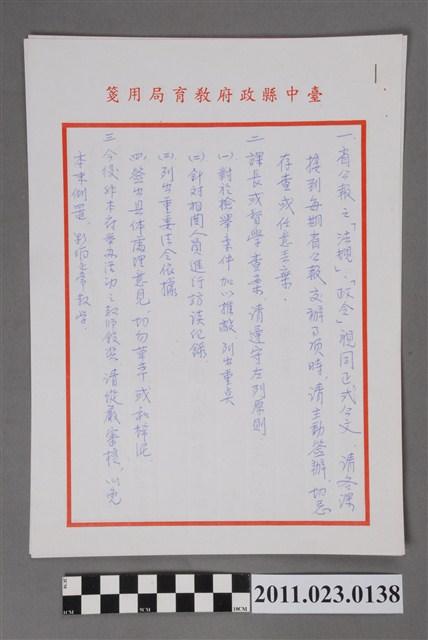 臺中縣政府教育局用箋
一、省公報之「法規」、「政令」視同正式公文、請各課
接到每期省公報交辦事項時、請主動簽辦、切忌
存查或任意丟棄.
二、課長或督學查案、請遵守左列原則
㈠對於檢舉案件加以推敲、列出重点
㈡針對相關人員進行訪談紀錄
㈢列出重要法令依據
㈣簽出具体處理意見、切勿草率或和稀泥
三、今後非本府舉辦活動之教師敘獎、請從嚴審核、以免
本末倒置、影响正常教學.
1CM
5CM
10CM
2011.023.0138